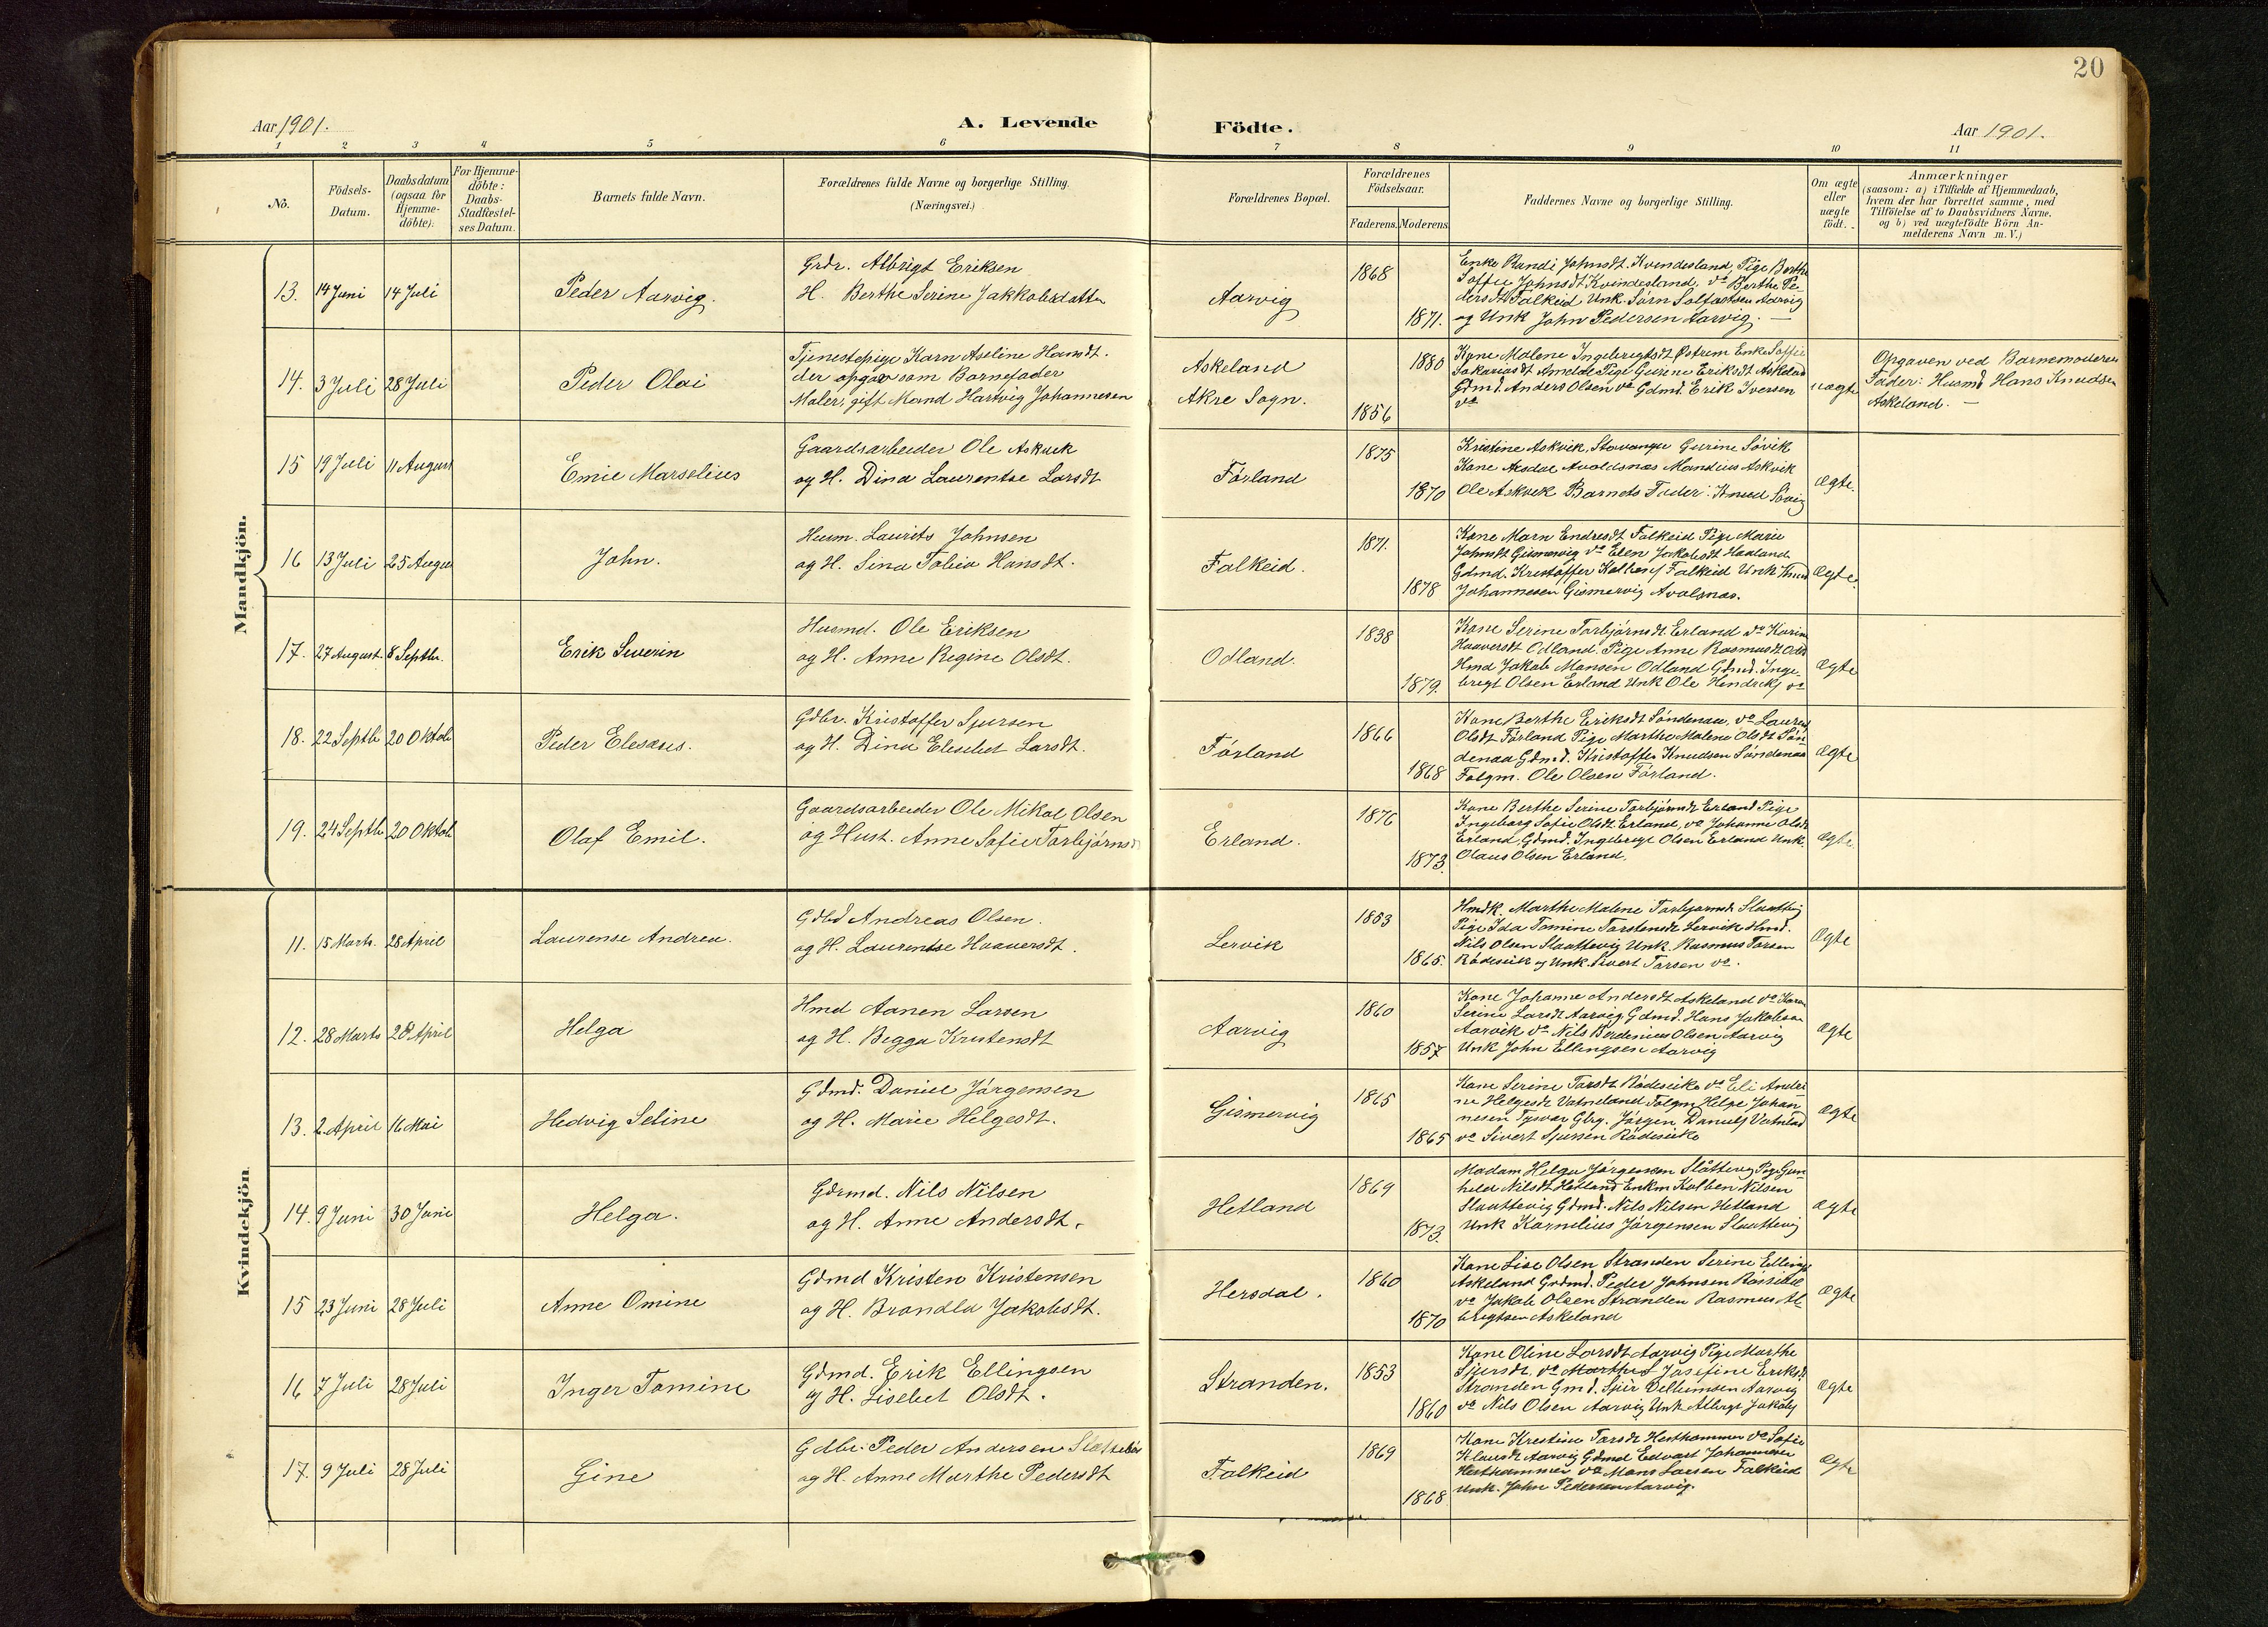 20
Aar 1901.
A. Levende
Födte.
Aar 1901.
1 2 3 4 5 6 7 8 9 10 11
No.
Födsels-
Datum.
Daabsdatum
(ogsaa for
Hjemme-
döbte).
For Hjemme-
döbte:
Daabs-
Stadfæstel-
ses Datum.
Barnets fulde Navn.
Forældrenes fulde Navne og borgerlige Stilling.
(Næringsvei.)
Forældrenes Bopæl.
Forældrenes
Födselsaar.
Faderens. Moderens.
Faddernes Navne og borgerlige Stilling.
Om ægte
eller
uægte
födt.
Anmærkninger
(saasom: a) i Tilfælde af Hjemmedaab,
hvem der har forrettet samme, med
Tilföielse af to Daabsvidners Navne.
og b) ved uægtefödte Börn An-
melderens Navn m. V.)
Mandkjön.
13. 14 Juni 14 Juli
Peder Aarvig.
Grdr. Albrigt Eriksen
H. Berthe Serine Jakkobsdatter
Aarvig
1868
1871.
Enke Randi Johnsdt. Kvindesland, Pige Berthe
Soffie Johnsdt Kvindesland, do Berthe Pe-
dersdt Falkeid Unk. Sørn Salfastsen Aarvig
og Unk John Pedersen Aarvig. —
14. 3 Juli 28 Juli
Peder Olai
Tjenestepige Karn Aseline Hansdt.
der opgav som Barnefader
Maler, gift Mand Hartvig Johannesen
Askeland
Akre Sogn.
1880
1856
Kone Malene Ingebregtsdt Østrem Enke Soffie
Sakariasdt Amdal Pige Gurine Eriksdt Askeland
Gdmd. Anders Olsen do Gdmd. Erik Iversen
do
uægte
Opgaven ved Barnemoderens
Fader: Husmd Hans Knudsen
Askeland. —
15 19 Juli 11 August
Emie Marselius
Gaardsarbeider Ole Askvik
og H. Dina Laurentse Larsdt
Førland
1875
1870
Kristine Askvik, Stavanger Gurine Søvik
Kone Avaldsnes Mandius Askvik
Ole Askvik Barnets Fader: Knud Søvig
Ægte.
16 13 Juli 25 August
John.
Husm. Laurits Johnsen
og H. Sina Tobia Hansdt.
Falkeid.
1871.
1878
Kone Marn Endresdt Falkeid Pige Marie
Johnsdt Gismervig do Elen Jakobsdt Haaland
Gdmd. Kristoffer Kolbens Falkeid Unk Knud
Johannesen Gismervig Avalsnes.
Ægte.
17. 27 August. 8 Septbr.
Erik Severin
Husmd. Ole Eriksen
og H. Anne Regine Olsdt.
Odland.
1838
1879.
Kone Serine Torbjørnsdt. Erland do Karin
Haaversdt Odland. Pige Anne Rasmusdt Odld
Hmd Jakob Monsen Odland Gdmd. Inge-
bregt Olsen Erland Unk Ole Hendriks do
Ægte
18. 22 Septb 20 Oktob
Peder Eleseus.
Gdbr. Kristoffer Sjursen
og H. Dina Elesebet Larsdt.
Førland
1866
1868
Kone Berthe Eriksdt Søndenaa, do Laurens
Olsdt Førland Pige Marthe Malene Olsdt Søn-
denaa Gdmd. Kristoffer Knudsen Søndenaa
Folgm. Ole Olsen Førland.
Ægte
19. 24 Septb 20 Oktob
Olaf Emil.
Gaardsarbeider Ole Mikal Olsen
og Hust. Anne Sofie Torbjørnsd
Erland.
1876
1873.
Kone Berthe Serine Torbjørnsdt Erland Pige
Ingeborg Sofie Olsdt. Erland, do Johanne Olsdt
Erland, Gdmd. Ingebregt Olsen Erland Unk.
Olaus Olsen Erland.
Ægte.
Kvindekjön.
11. 15 Marts. 28 April
Laurense Andrea.
Gdbd Andreas Olsen.
og H. Laurentse Haaversdt.
Lervik
1853
1865.
Hmdk. Marthe Malene Torbjørnsdt Slaattevig
Pige Ida Tomine Torstensdt Lervik Hmd.
Nils Olsen Slaattevig Unk. Rasmus Tarsen
Rødseik og Unk. Sivert Tarsen do.
Ægte
12. 28 Marts 28 April
Helga
Hmd Aanen Larsen
og H. Begga Kristensdt
Aarvig
1860
1857
Kone Johanne Andersdt Askeland do Karen
Serine Larsdt Aarvig Gdmd. Hans Jakobsen
Aarvik do Nils Berdenius Olsen Aarvig
Unk John Ellingsen Aarvig
Ægte
13. 2 April 16 Mai
Hedvig Seline
Gdmd. Daniel Jørgensen
og H. Marie Helgesdt.
Gismervig
1865
1865
Kone Serine Tarsdt. Rødseike do Eli Andri-
ne Helgesdt Vatneland Folgm Helge Johan-
nesen Tysver Gbrg. Jørgen Daniels Vatnland
do Sivert Sjursen Rødseike
Ægte
14. 9 Juni 30 Juni
Helga.
Gdrmd. Nils Nilsen
og H. Anne Andersdt.
Hetland
1869
1873.
Madam Helga Jørgensen Slåttevig Pige Gun-
hild Nilsdt Hetland Enkm Kolben Nilsen
Slaattevig Gdmd. Nils Nilsen Hetland
Unk Kornelius Jørgensen Slaattevig
Ægte
15 23 Juni 28 Juli
Anne Omine
Gdmd Kristen Kristensen
og H. Brandla Jakobsdt.
Hersdal.
1860
1870
Kone Lise Olsen Stranden Serine Ellings
Askeland Grdmd. Peder Johnsen
do Jakob Olsen Stranden Rasmus Al-
bregtsen Askeland
Ægte
16 7 Juli 28 Juli
Inger Tomine
Gdmd. Erik Ellingsen
og H. Lisebet Olsdt.
Stranden.
1853
1860
Kone Oline Larsdt Aarvig Pige Marthe
Sjursdt, do Marthes Josefine Eriksdt
Stranden Gmd. Sjur Velhemsen Aarvig
do Nils Olsen Aarvig Unk Albregt Jakobs
Ægte
17. 9 Juli 28 Juli
Gine
Gdbr. Peder Andersen Slettebø
og H. Anne Marthe Pedersdt
Falkeid
1869
1868
Kone Krestine Tarsdt Hesthammer do Sofie
Klausdt Aarvig Gdmd Edvart Johannesen
Hesthammer do Mons Larsen Falkeid
Unk. John Pedersen Aarvig.
Ægte